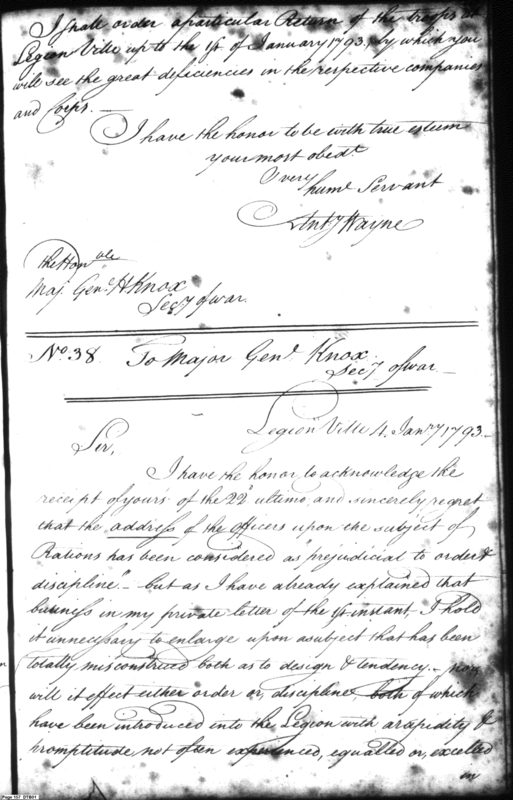 I shall order a particular Return of the troops at
Legion Ville up to the 1st of January 1793, by which you
will see the great deficiencies in the respective companies
and Corps. —
I have the honor to be with true esteem
your most obedt.
& very huml Servant
Anty Wayne
The Honble
Maj. Genl. H Knox
Secy of war.
No. 38 To Major Genl Knox
Secy of war —
Legion Ville 4. Jany 1793 —
Sir,
I have the honor to acknowledge the
receipt of yours of the 22d ultimo, and sincerely regret
that the address of the officers upon the subject of
Rations has been considered as "prejudicial to order &
discipline" — but as I have already explained that
business in my private letter of the 1st instant, I hold
it unnecessary to enlarge upon a subject that has been
totally misconstrued both as to design & tendency — nor
will it effect either order or, discipline, both of which
have been introduced into the Legion with a rapidity &
promptitude not often experienced, equalled or, excelled
in